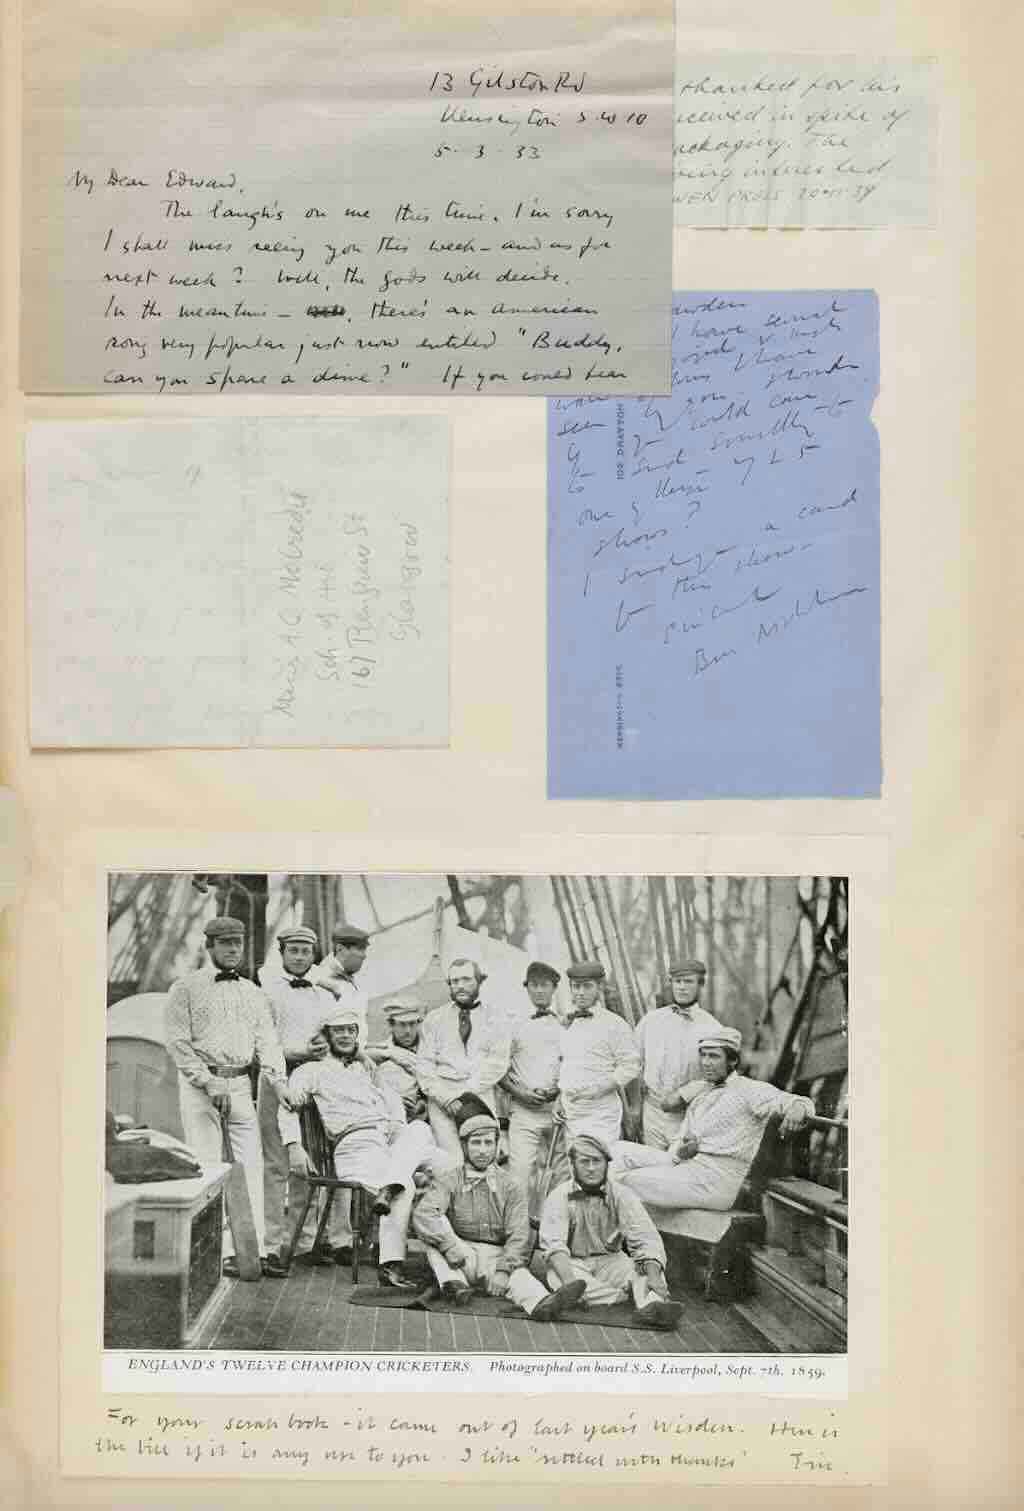 13 Gilston Rd
Kensington S.W 10
5.3.33
My Dear Edward,
The laugh's on me this time. I'm sorry
I shall miss seeing you this week - and as for
next week? Well, the gods will decide.
In the meantime - there's an American
song very popular just now entitled "Buddy,
can you spare a dime?" If you could hear
thanked for his
eceived in spite of
ackaging. The
ving interested
WEN PRESS
I have
seen
you could
to send
one of these 7 & 5
shows?
I send you a card
to this show -
Ben Nicholson
Miss A.Q McCredie
Sch. of Art
167 Renfrew St
Glasgow
ENGLAND'S TWELVE CHAMPION CRICKETERS. Photographed on board S.S. Liverpool, Sept. 7th. 1859.
For your scrap book - it came out of last year's Wisden. Here is
the bill if it is any use to you. I like "settled with thanks"